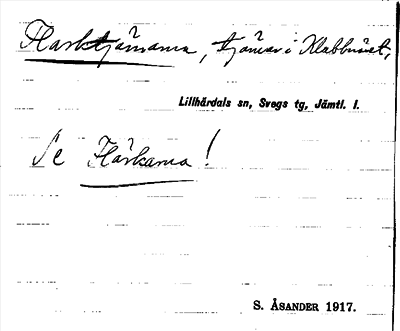 Flarktjärnarna, tjärnar i Klabbniset,
Lillhärdals sn, Svegs tg, Jämtl. l.
Se Flärkarna!
S. ÅSANDER 1917.